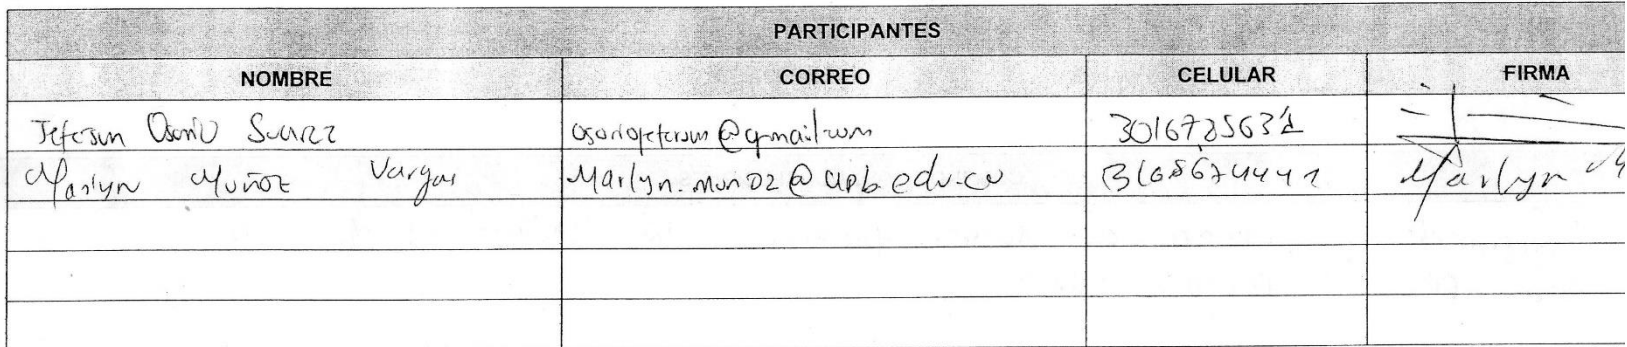 PARTICIPANTES
NOMBRE CORREO CELULAR FIRMA
Jeferson Osorio Suarez osoriojeferson@gmail.com 3016785631
Marlyn Muñoz Vargas Marlyn.munoz@upb.edu.co 3168674441 Marlyn M